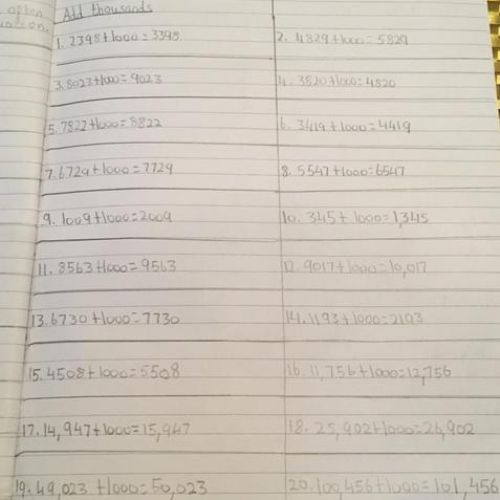 often
Add thousands
1. 2398+1000=3398
2. 4829+1000=5829
3. 8023+1000=9023
4. 3820+1000=4820
5. 7822+1000=8822
6. 3419+1000=4419
7. 6729+1000=7729
8. 5547+1000=6547
9. 1009+1000=2009
10. 345+1000=1,345
11. 8563+1000=9563
12. 9017+1000=10,017
13. 6730+1000=7730
14. 1193+1000=2193
15. 4508+1000=5508
16. 11,756+1000=12,756
17. 14,947+1000=15,947
18. 25,902+1000=26,902
19. 49,023+1000=50,023
20. 100,456+1000=101,456